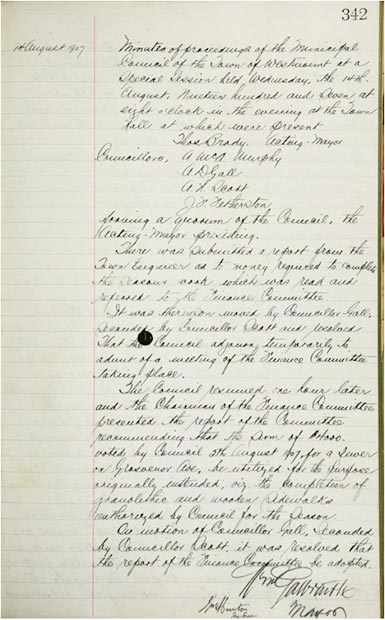 342
14 August 1907
Minutes of proceedings of the Municipal
Council of the Town of Westmount at a
Special Session held Wednesday, the 14th
August, Nineteen hundred and Seven at
eight o'clock in the evening at the Town
Hall at which were present
Thos Brody, Acting-Mayor
Councillors, A Murphy
A D Gall
A Scott
J Fetherston,
forming a quorum of the Council, the
Acting-Mayor presiding.
There was submitted a report from the
Town Engineer as to money required to complete
the Seasons work which was read and
referred to the Finance Committee.
It was thereupon moved by Councillor Gall,
Seconded by Councillor Scott and resolved
That the Council adjourn temporarily to
admit of a meeting of the Finance Committee
taking place.
The Council resumed one hour later
and the Chairman of the Finance Committee
presented the report of the Committee
recommending that the Sum of
voted by Council 9th August 1907, for a Sewer
on Grosvenor Ave, be utilized for the purpose
originally intended, viz the completion of
granolithic and wooden sidewalks
authorized by Council for the Season
On motion of Councillor Gall, Seconded
by Councillor Scott, it was resolved that
the report of the Finance Committee be adopted.
Wm Galbraith
Mayor